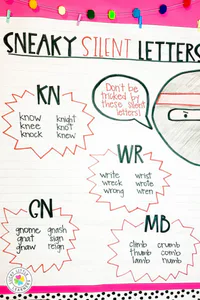 SNEAKY SILENT LETTERS
Don't be
tricked by
these silent
letters!
KN
know knight
knee knot
knock knew
WR
write wrist
wreck wrote
wrong wren
GN
gnome gnash
gnat sign
gnaw reign
MB
climb crumb
thumb comb
lamb numb